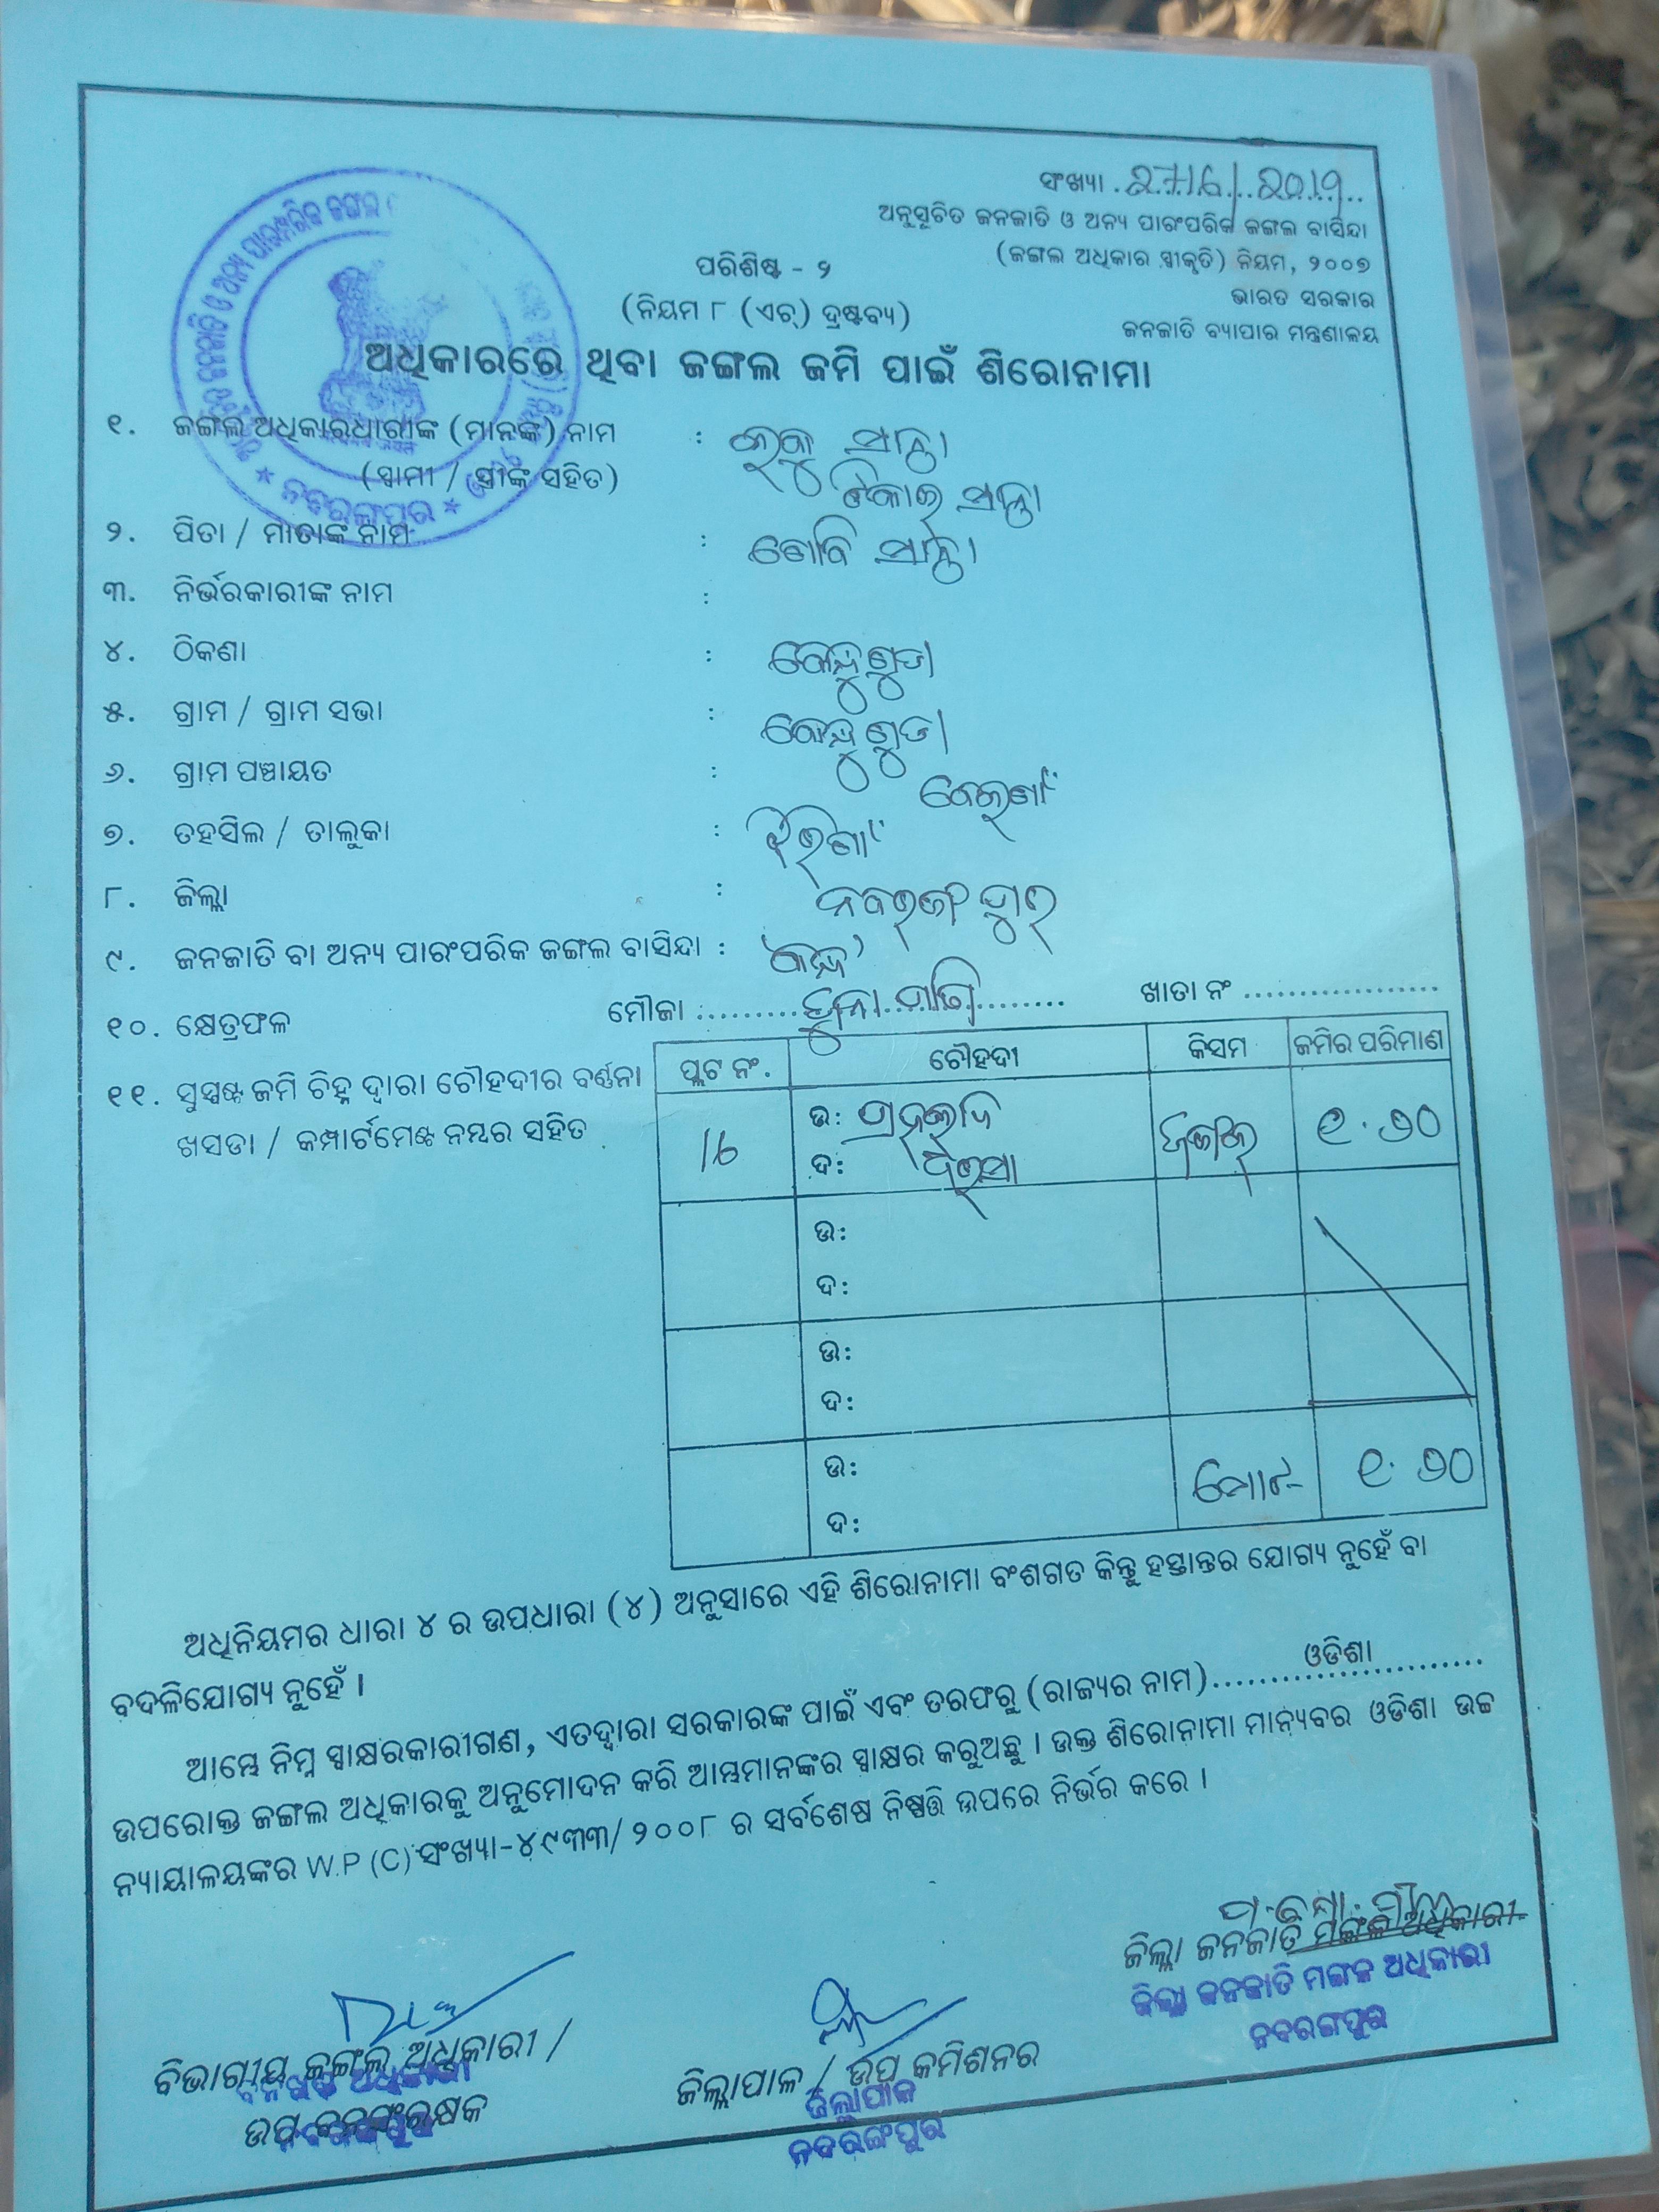 ସଂଖ୍ୟା . 2716/2019
ଅନୁସୂଚିତ ଜନଜାତି ଓ ଅନ୍ୟ ପାରଂପରିକ ଜଙ୍ଗଲ ବାସିନ୍ଦା
(ଜଙ୍ଗଲ ଅଧିକାର ସ୍ୱୀକୃତି) ନିୟମ, ୨୦୦୭
ଭାରତ ସରକାର
ଜନଜାତି ବ୍ୟାପାର ମନ୍ତ୍ରଣାଳୟ
ପରିଶିଷ୍ଟ - ୨
(ନିୟମ ୮ (ଏଚ୍) ଦ୍ରଷ୍ଟବ୍ୟ)
ଅଧିକାରରେ ଥିବା ଜଙ୍ଗଲ ଜମି ପାଇଁ ଶିରୋନାମା
୧. ଜଙ୍ଗଲ ଅଧିକାରଧାରୀଙ୍କ (ମାନଙ୍କ) ନାମ :
(ସ୍ୱାମୀ / ସ୍ତ୍ରୀଙ୍କ ସହିତ)
୨. ପିତା / ମାତାଙ୍କ ନାମ :
୩. ନିର୍ଭରକାରୀଙ୍କ ନାମ :
୪. ଠିକଣା : କେନ୍ଦୁଗୁଡା
୫. ଗ୍ରାମ / ଗ୍ରାମ ସଭା : କେନ୍ଦୁଗୁଡା
୬. ଗ୍ରାମ ପଞ୍ଚାୟତ :
୭. ତହସିଲ / ତାଲୁକା : ଝରିଗାଁ
୮. ଜିଲ୍ଲା : ନବରଙ୍ଗପୁର
୯. ଜନଜାତି ବା ଅନ୍ୟ ପାରଂପରିକ ଜଙ୍ଗଲ ବାସିନ୍ଦା : କନ୍ଧ
୧୦. କ୍ଷେତ୍ରଫଳ ମୌଜା ......... ଖାତା ନଂ ...................
୧୧. ସୁସ୍ପଷ୍ଟ ଜମି ଚିହ୍ନ ଦ୍ୱାରା ଚୌହଦୀର ବର୍ଣ୍ଣନା
ଖସଡା / କମ୍ପାର୍ଟମେଣ୍ଟ ନମ୍ବର ସହିତ
ପ୍ଲଟ ନଂ. ଚୌହଦୀ କିସମ ଜମିର ପରିମାଣ
16 ଉ: ଜଙ୍ଗଲ ୧.୬୦
ଦ:
ଉ:
ଦ:
ଉ:
ଦ:
ଉ: ମୋଟ- ୧.୬୦
ଦ:
ଅଧିନିୟମର ଧାରା ୪ ର ଉପଧାରା (୪) ଅନୁସାରେ ଏହି ଶିରୋନାମା ବଂଶଗତ କିନ୍ତୁ ହସ୍ତାନ୍ତର ଯୋଗ୍ୟ ନୁହେଁ ବା
ବଦଳିଯୋଗ୍ୟ ନୁହେଁ ।
ଆମ୍ଭେ ନିମ୍ନ ସ୍ୱାକ୍ଷରକାରୀଗଣ, ଏତଦ୍ୱାରା ସରକାରଙ୍କ ପାଇଁ ଏବଂ ତରଫରୁ (ରାଜ୍ୟର ନାମ) ........ଓଡିଶା........
ଉପରୋକ୍ତ ଜଙ୍ଗଲ ଅଧିକାରକୁ ଅନୁମୋଦନ କରି ଆମ୍ଭମାନଙ୍କର ସ୍ୱାକ୍ଷର କରୁଅଛୁ । ଉକ୍ତ ଶିରୋନାମା ମାନ୍ୟବର ଓଡିଶା ଉଚ୍ଚ
ନ୍ୟାୟାଳୟଙ୍କର W.P (C) ସଂଖ୍ୟା-୪୯୩୩/୨୦୦୮ ର ସର୍ବଶେଷ ନିଷ୍ପତ୍ତି ଉପରେ ନିର୍ଭର କରେ ।
ଜିଲ୍ଲା ଜନଜାତି ମଙ୍ଗଳ ଅଧିକାରୀ
ଜିଲ୍ଲା ଜନଜାତି ମଙ୍ଗଳ ଅଧିକାରୀ
ନବରଙ୍ଗପୁର
ବିଭାଗୀୟ ଜଙ୍ଗଲ ଅଧିକାରୀ /
ଉପ ବନସଂରକ୍ଷକ
ଜିଲ୍ଲାପାଳ / ଉପ କମିଶନର
ଜିଲ୍ଲାପାଳ
ନବରଙ୍ଗପୁର